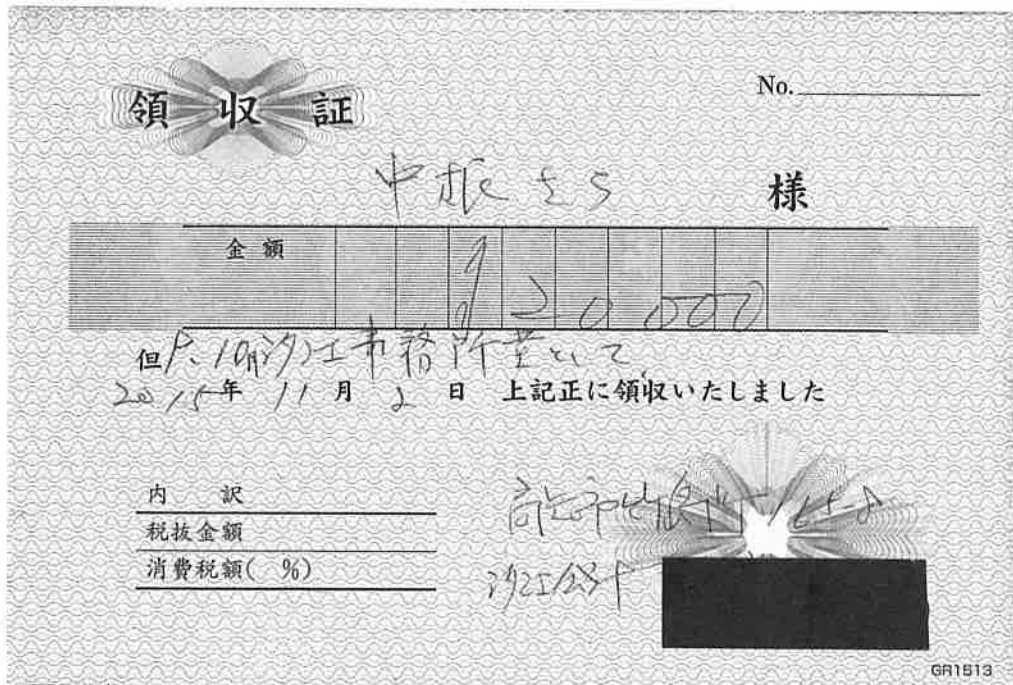 領収証
No.
中根さち 様
金額 ¥20,000
但 10月汐江事務所費として
2015年 11月 2日 上記正に領収いたしました
内訳
税抜金額
消費税額( %)
高知市
汐江
GR1513